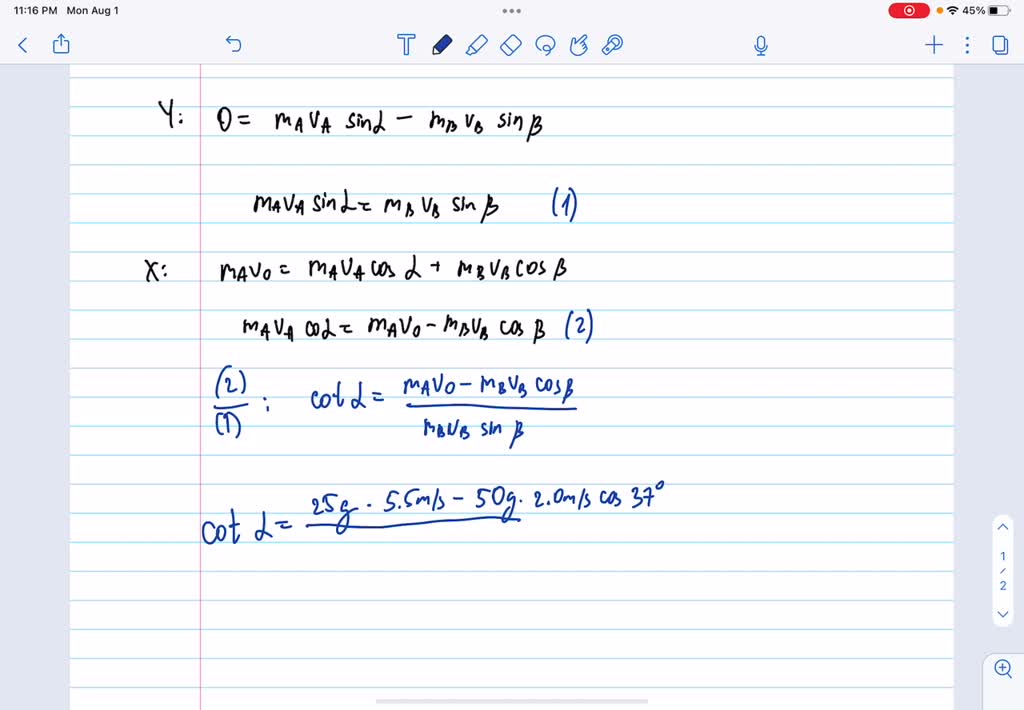 11:16 PM Mon Aug 1
45%
T
Y: 0 = mA vA sin α − mB vB sin β
mA vA sin α = mB vB sin β (1)
X: mA v0 = mA vA cos α + mB vB cos β
mA vA cos α = mA v0 − mB vB cos β (2)
(2)/(1) : cot α = (mA v0 − mB vB cos β)/(mB vB sin β)
cot α = 25g · 5.5m/s − 50g · 2.0m/s cos 37°
1
/
2